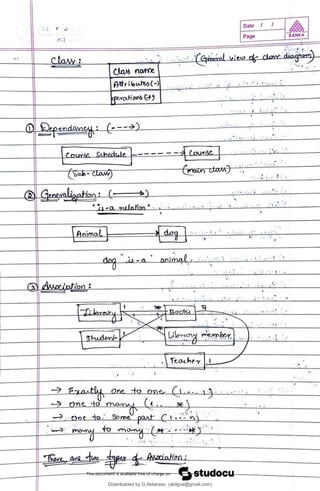 Date / /
Page
RANKA
Class :
(General view of class diagram)
Class name
Attributes (-)
operations (+)
① Dependancy : (- - - ->)
Course Schedule
Course
(Sub-class)
(main class)
② Generalization : (———>)
"is-a relation"
Animal
dog
dog "is-a" animal
③ Association :
Library
Books
Student
Library member
Teacher
→ Exactly one to one (1....1)
→ one to many (1....*)
→ one to some part (1....n)
→ many to many (*....*)
There are two types of Association :
This document is available free of charge on
studocu
Downloaded by G.Akilarasu